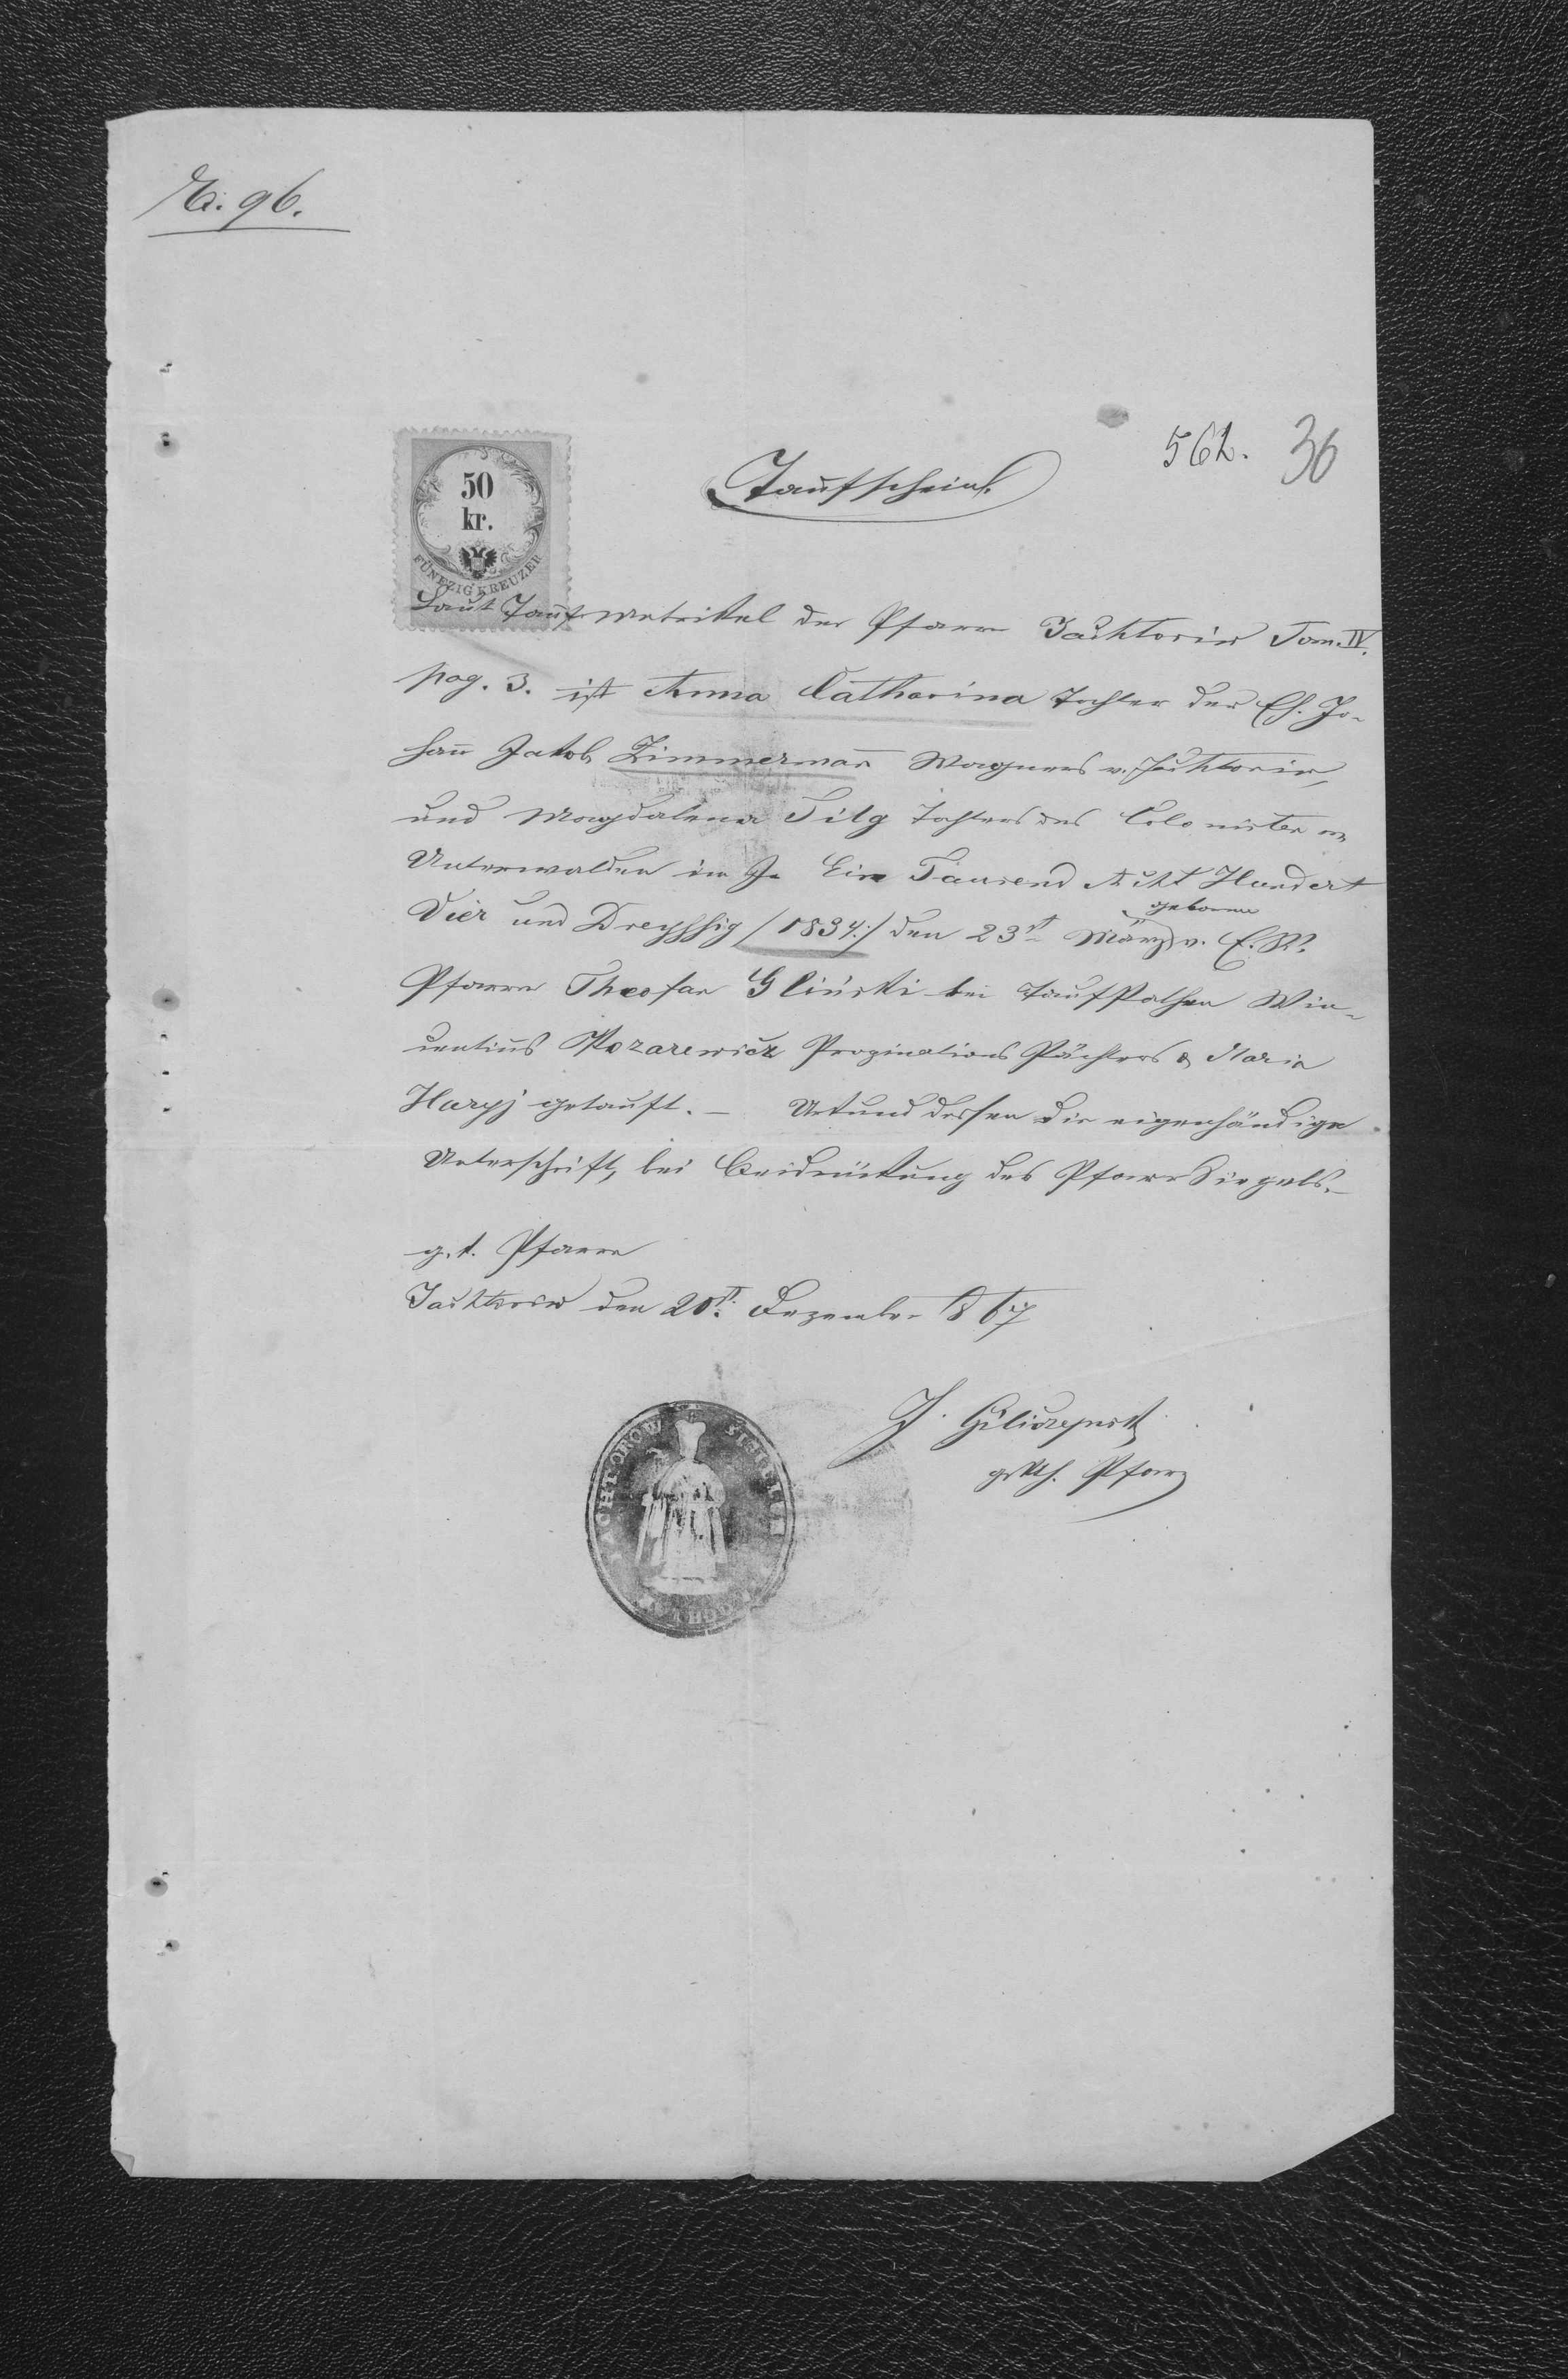 E: 96.
562. 36
Taufschein.
50
kr.
FÜNFZIG KREUZER
Laut Taufmatrikel der Pfarre Jachtorow Tom. IV.
pag. 3. ist Anna Catharina Tochter der Eh. Jo-
hann Jakob Zimmerman Wagners v. Jachtorow,
und Magdalena Silg Tochter des Colonisten v.
Unterwalden im J. Ein Tausend Acht Hundert
geboren
Vier und Dreyssig /:1834:/ den 23t März v. E. W.
Pfarrer Theofan Gliński bei TaufPathen Win-
centius Kozarewicz Propinations Pächters & Maria
Haryj getauft. – Urkund dessen die eigenhändige
Unterschrift, bei Beidrückung des PfarrSiegels. –
g. k. Pfarre
Jachtorow den 20t. Dezember 1867
JACHTOROW
J.
gr. kth. Pfarrer